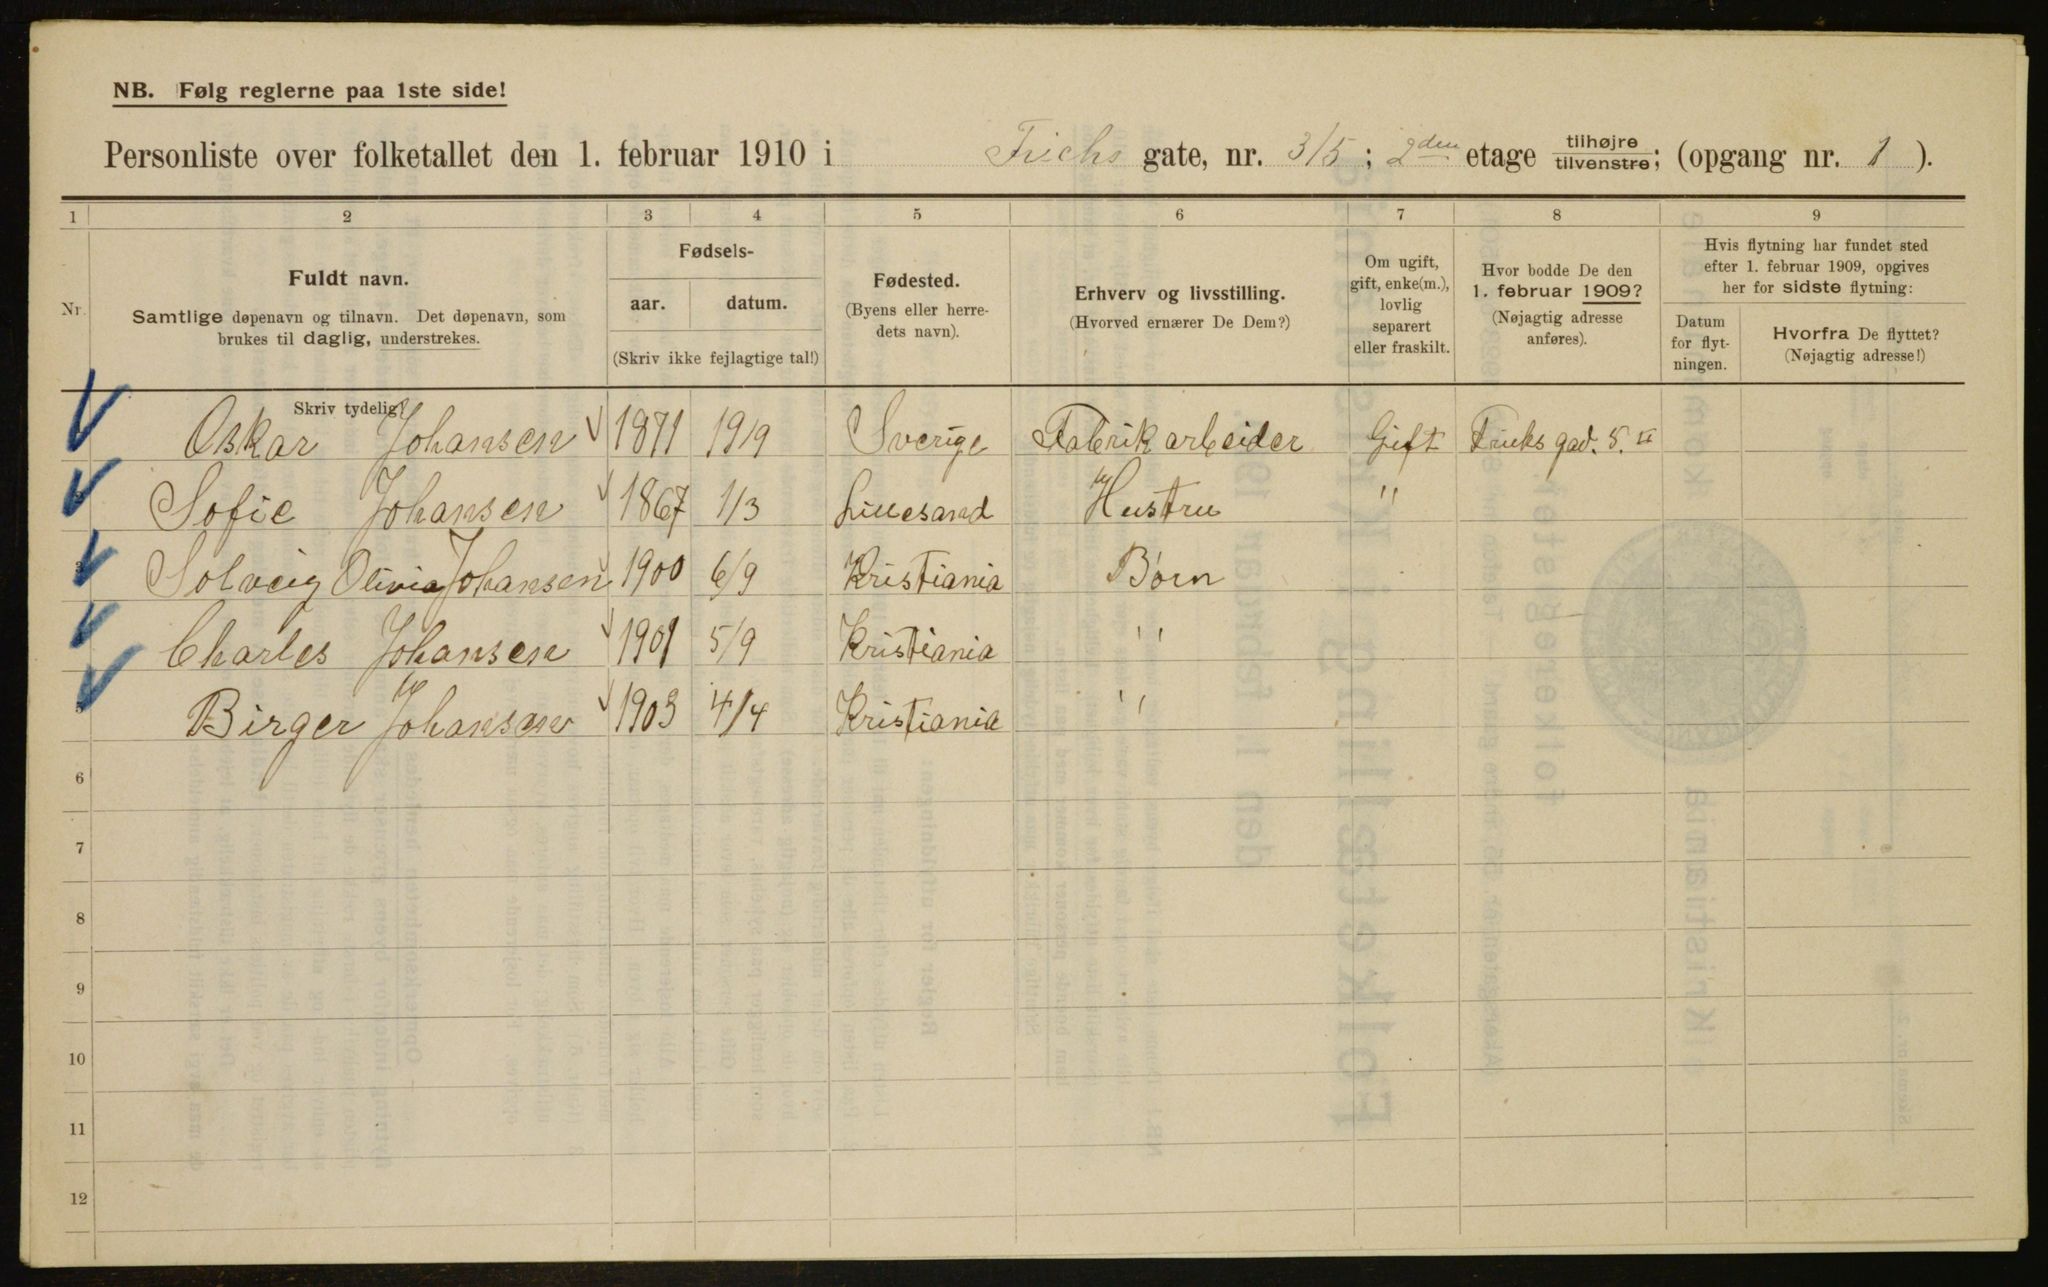 NB. Følg reglerne paa 1ste side!
Personliste over folketallet den 1. februar 1910 i Frichs gate, nr. 3/5 ; 2den etage tilhøjre tilvenstre; (opgang nr. 1 ).
1 2 3 4 5 6 7 8 9
Nr.
Fuldt navn.
Samtlige døpenavn og tilnavn. Det døpenavn, som
brukes til daglig, understrekes.
Fødsels-
aar. datum.
(Skriv ikke fejlagtige tal!)
Fødested.
(Byens eller herre-
dets navn).
Erhverv og livsstilling.
(Hvorved ernærer De Dem?)
Om ugift,
gift, enke(m.),
lovlig
separert
eller fraskilt.
Hvor bodde De den
1. februar 1909?
(Nøjagtig adresse
anføres).
Hvis flytning har fundet sted
efter 1. februar 1909, opgives
her for sidste flytning:
Datum
for flyt-
ningen.
Hvorfra De flyttet?
(Nøjagtig adresse!)
Skriv tydelig!
Oskar Johansen 1871 19/9 Sverige Fabrikarbeider Gift Fricks gad. 5. II
Sofie Johansen 1867 1/3 Lillesand Hustru "
3 Solveig Olivia Johansen 1900 6/9 Kristiania Børn
Charles Johansen 1901 5/9 Kristiania "
5 Birger Johansen 1903 4/4 Kristiania "
6
7
8
9
10
11
12